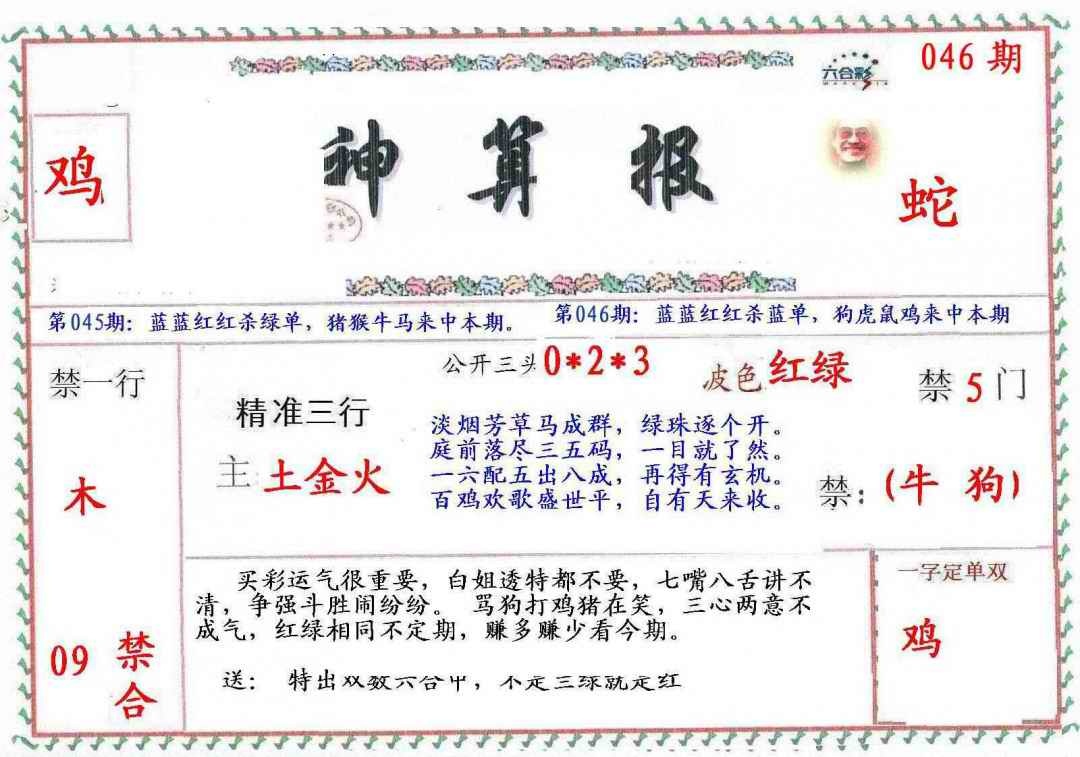 六合彩
046 期
神 算 报
鸡
蛇
第045期：蓝蓝红红杀绿单，猪猴牛马来中本期。
第046期：蓝蓝红红杀蓝单，狗虎鼠鸡来中本期
禁一行
木
09 禁合
公开三头0*2*3
波色 红绿
禁 5 门
精准三行
主 土金火
淡烟芳草马成群，绿珠逐个开。
庭前落尽三五码，一目就了然。
一六配五出八成，再得有玄机。
百鸡欢歌盛世平，自有天来收。
禁：(牛 狗)
买彩运气很重要，白姐透特都不要，七嘴八舌讲不
清，争强斗胜闹纷纷。 骂狗打鸡猪在笑，三心两意不
成气，红绿相同不定期，赚多赚少看今期。
送： 特出双数六合中，不是三绿就是红
一字定单双
鸡